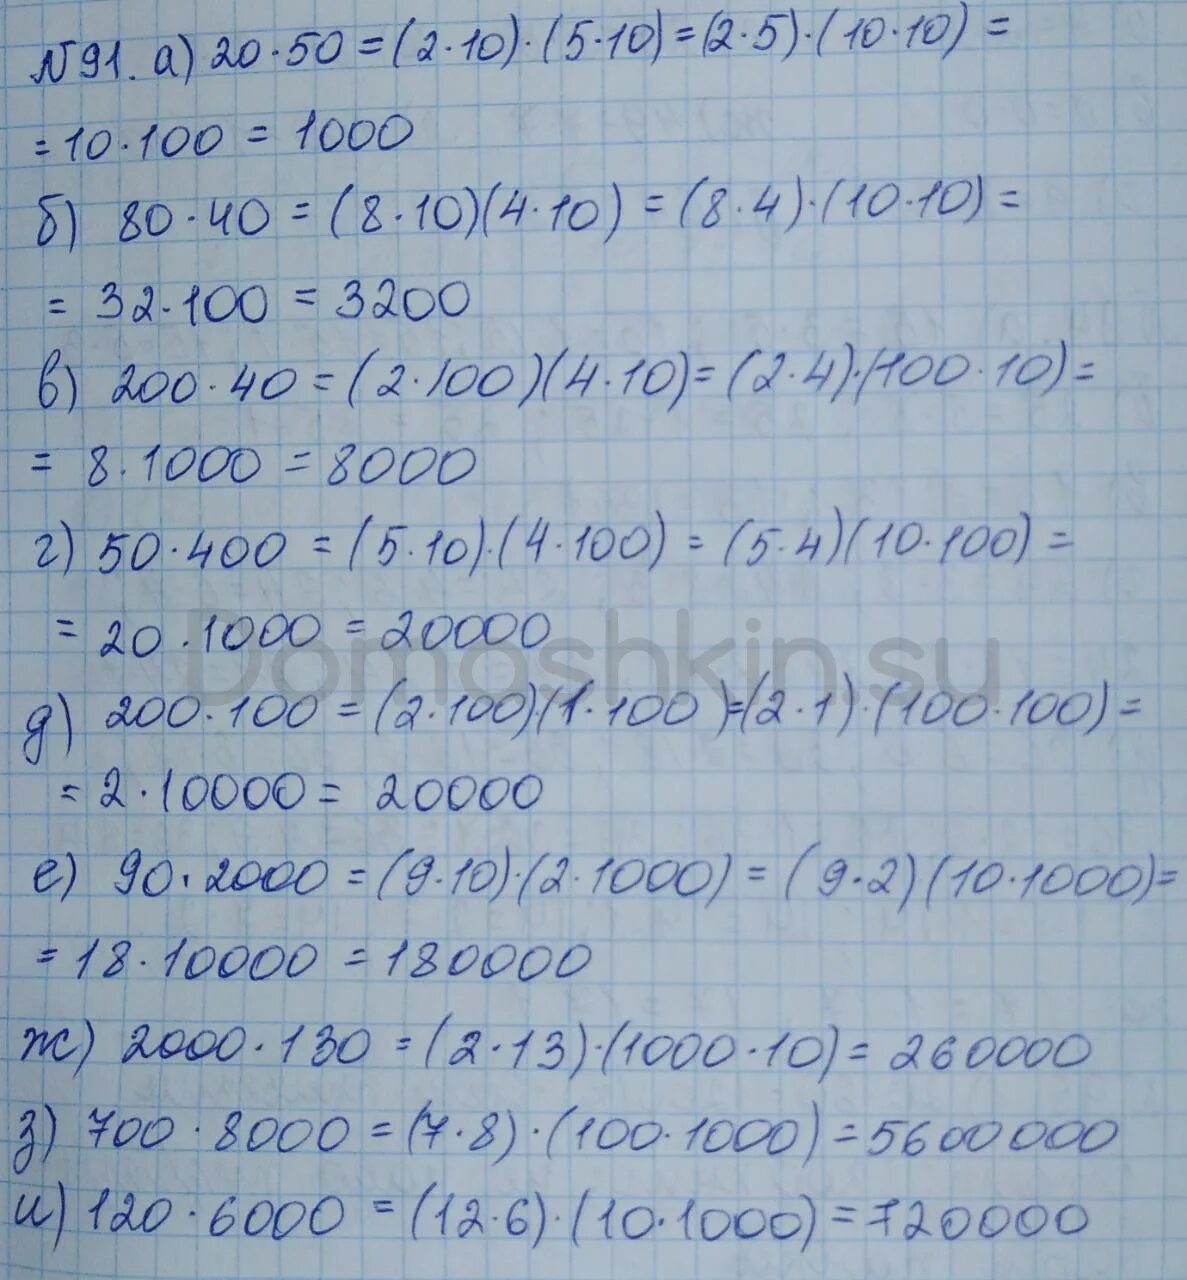 №91. а) 20·50 = (2·10)·(5·10) = (2·5)·(10·10) =
= 10·100 = 1000
б) 80·40 = (8·10)(4·10) = (8·4)·(10·10) =
= 32·100 = 3200
в) 200·40 = (2·100)(4·10) = (2·4)·(100·10) =
= 8·1000 = 8000
г) 50·400 = (5·10)·(4·100) = (5·4)(10·100) =
= 20·1000 = 20000
Domoshkin.su
д) 200·100 = (2·100)·(1·100) = (2·1)·(100·100) =
= 2·10000 = 20000
е) 90·2000 = (9·10)·(2·1000) = (9·2)(10·1000) =
= 18·10000 = 180000
ж) 2000·130 = (2·13)·(1000·10) = 260000
з) 700·8000 = (7·8)·(100·1000) = 5600000
и) 120·6000 = (12·6)·(10·1000) = 720000